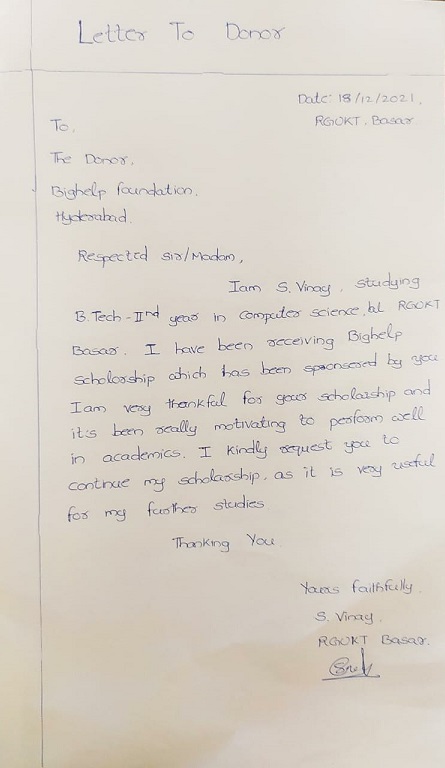 Letter To Donor
Date: 18/12/2021,
RGUKT, Basar.
To,
The Donor,
Bighelp foundation,
Hyderabad.
Respected Sir/Madam,
Iam S. Vinay, studying
B.Tech-IInd year in computer science, at RGUKT
Basar. I have been receiving Bighelp
scholarship which has been sponsered by you
Iam very thankful for your scholarship and
it's been really motivating to perform well
in academics. I kindly request you to
continue my scholarship, as it is very useful
for my further studies.
Thanking You.
Yours faithfully,
S. Vinay,
RGUKT Basar.